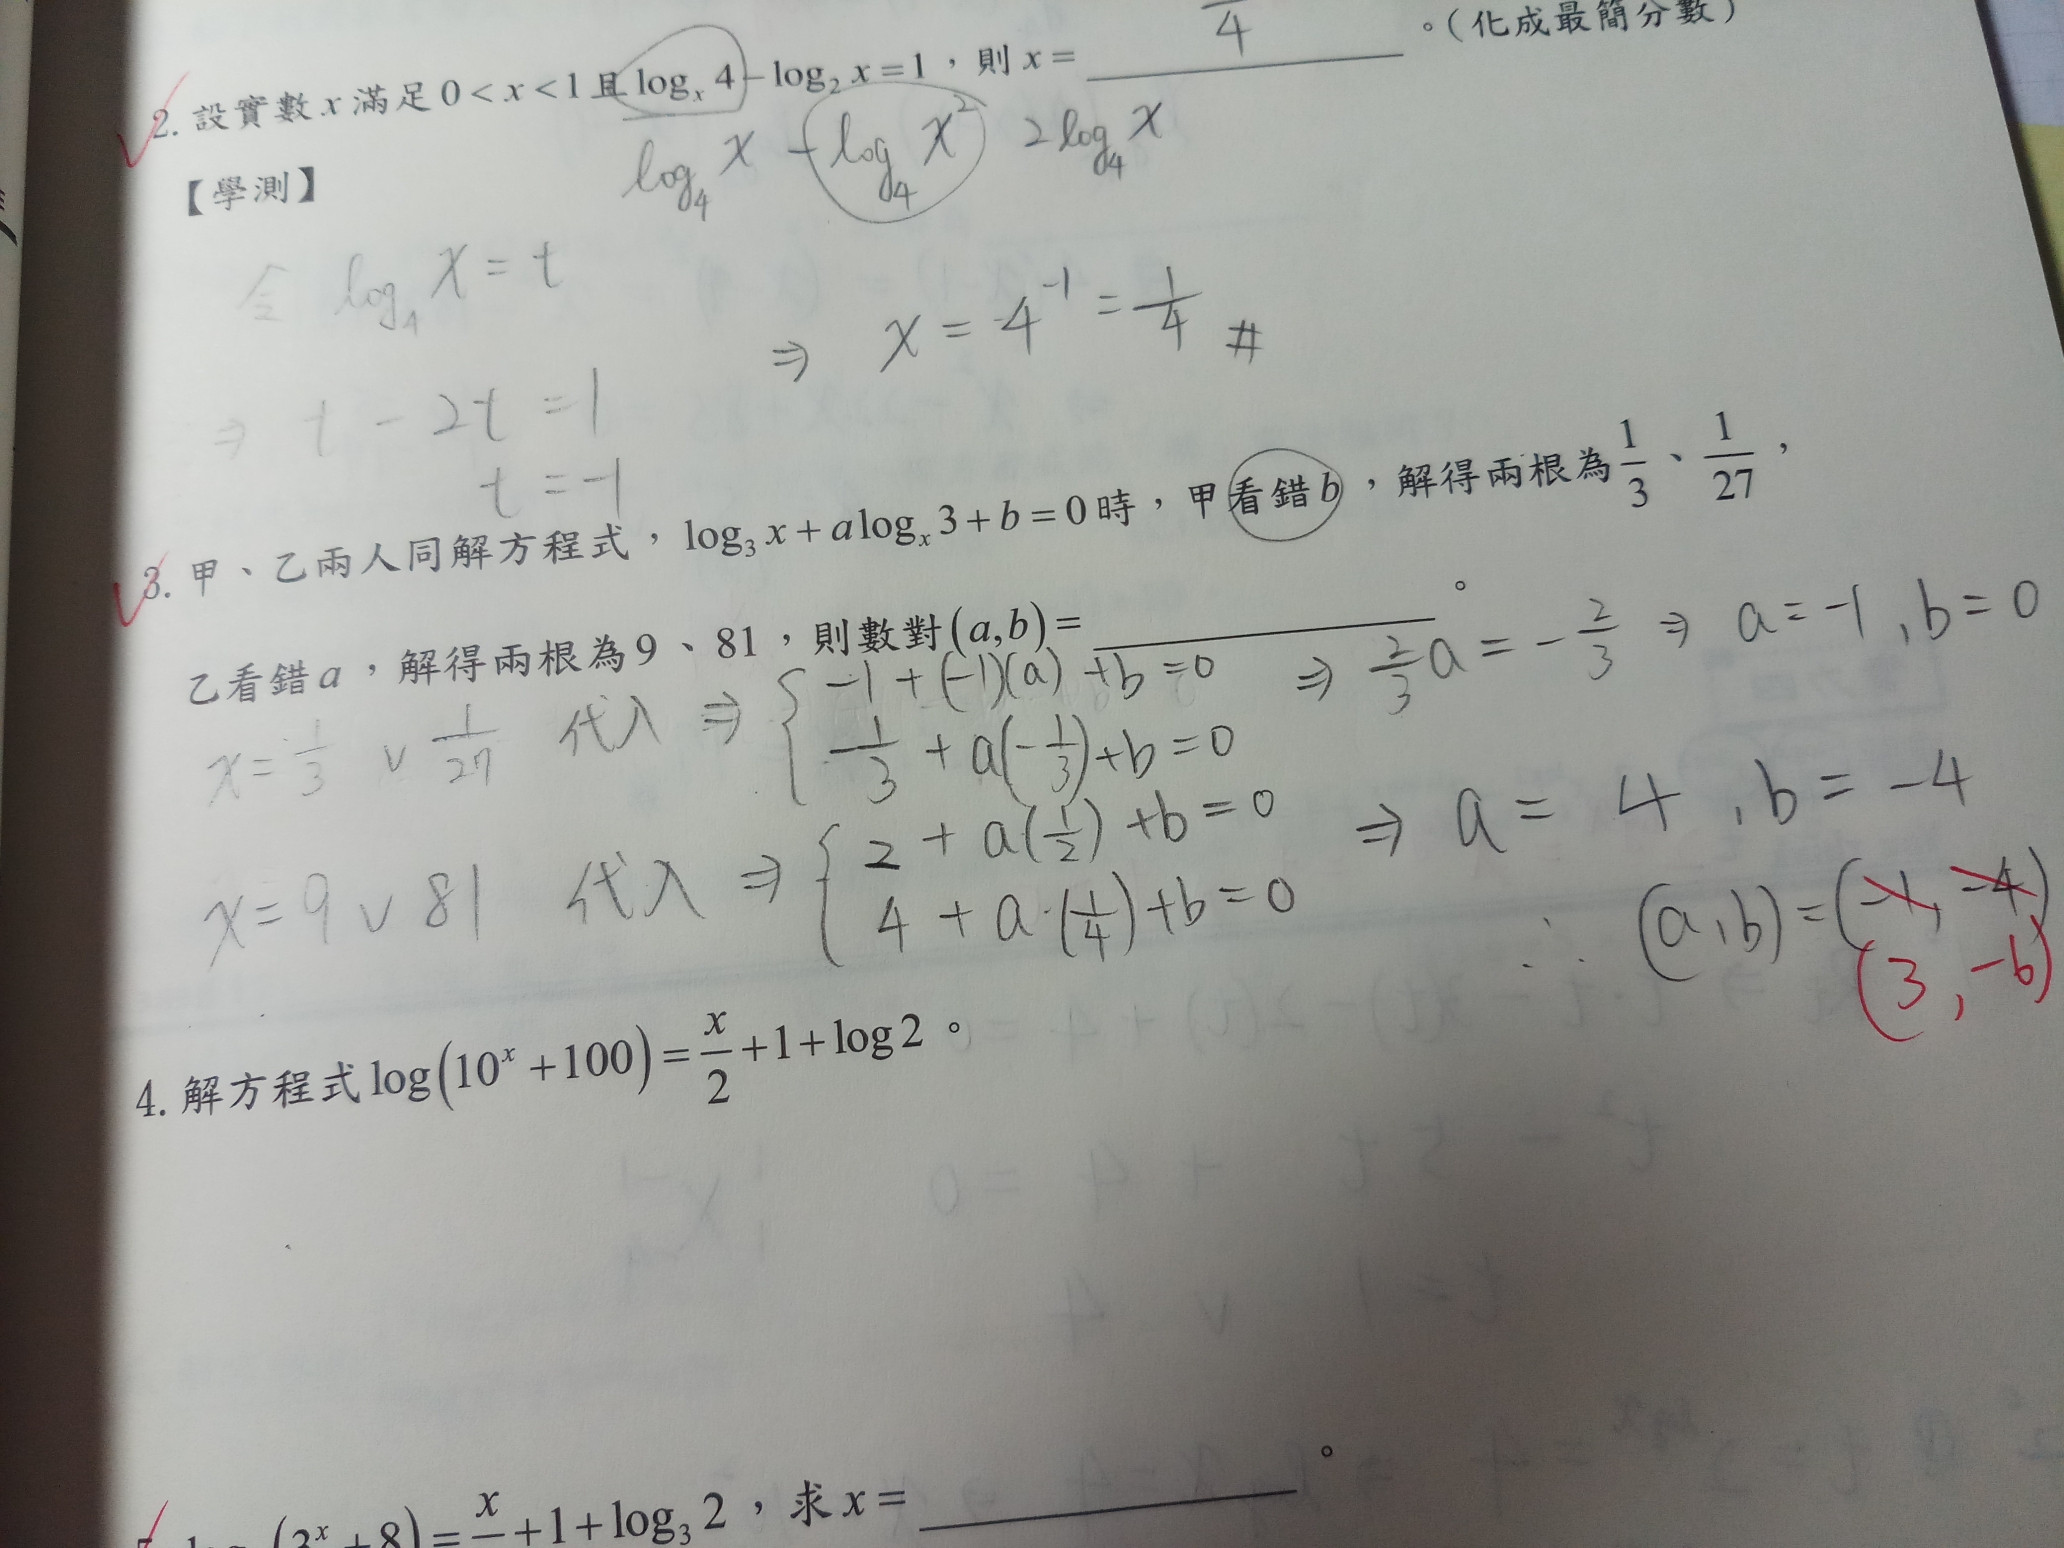 4
。(化成最簡分數)
2. 設實數 x 滿足 0 < x < 1 且 logₓ 4 − log₂ x = 1，則 x = ________
【學測】
log₄ x − log₄ x² 2 log₄ x
令 log₄ x = t
⇒ t − 2t = 1
t = −1
⇒ x = 4⁻¹ = 1/4 #
3. 甲、乙兩人同解方程式，log₃ x + a logₓ 3 + b = 0 時，甲看錯 b，解得兩根為 1/3、1/27，
乙看錯 a，解得兩根為 9、81，則數對 (a,b) = ________。
x = 1/3 ∨ 1/27 代入 ⇒ { −1 + (−1)(a) + b = 0 ⇒ 2/3 a = −2/3 ⇒ a = −1, b = 0
−1/3 + a(−1/3) + b = 0
x = 9 ∨ 81 代入 ⇒ { 2 + a(1/2) + b = 0 ⇒ a = 4, b = −4
4 + a·(1/4) + b = 0
∴ (a,b) = (−1, −4)
(3, −6)
4. 解方程式 log(10ˣ + 100) = x/2 + 1 + log 2。
(3ˣ + 8) = x/ + 1 + log₃ 2，求 x = ________。